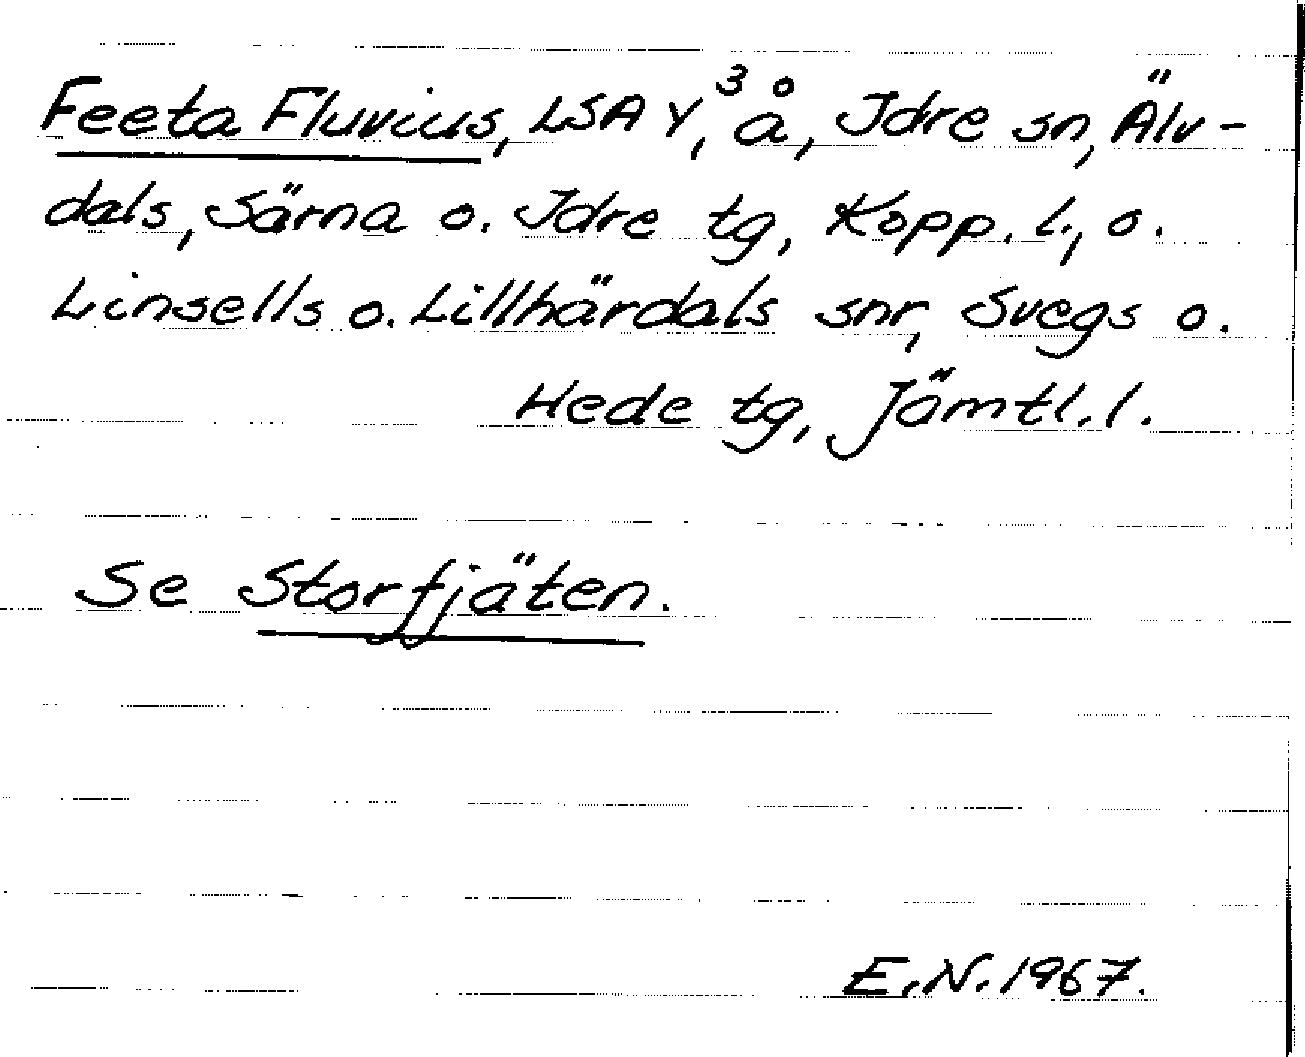 Feeta Fluvius, LSA Y,³ å, Idre sn, Älv-
dals, Särna o. Idre tg, Kopp. l., o.
Linsells o. Lillhärdals snr, Svegs o.
Hede tg, Jämtl. l.
Se Storfjäten.
E.N. 1967.